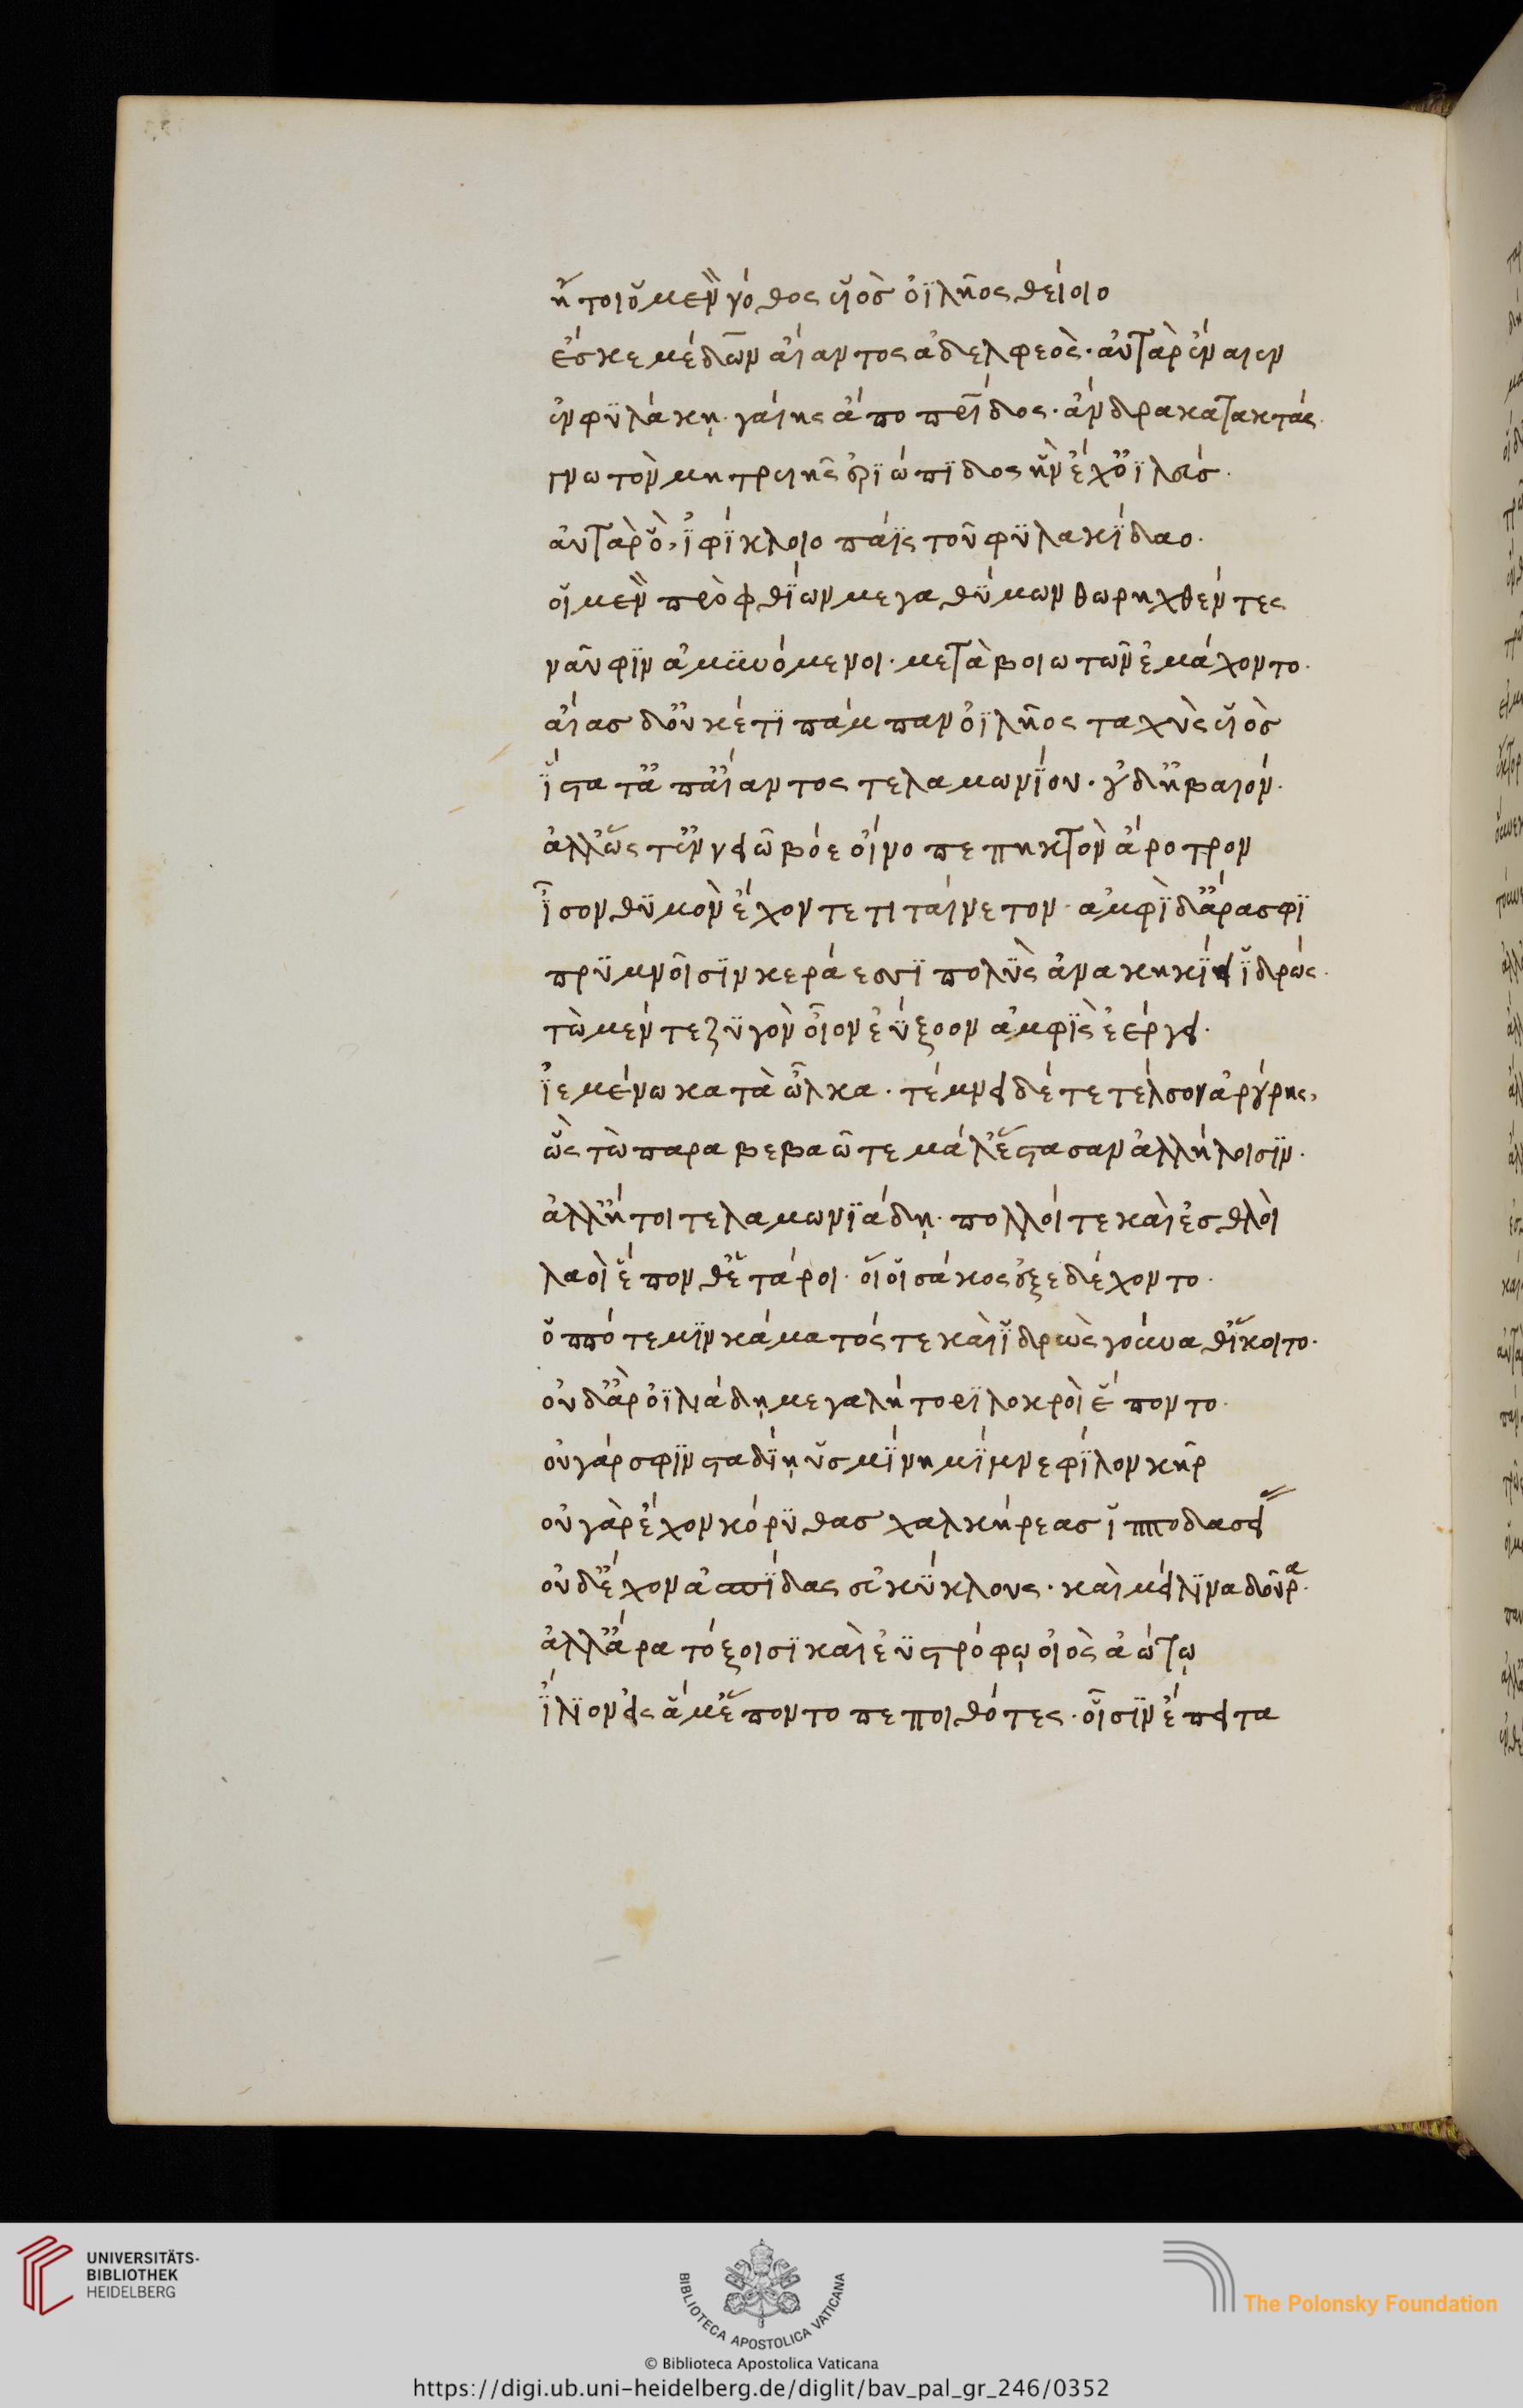 ἤτοι ὁ μὲν νόθος υἱὸσ ὀϊλῆος θείοιο
ἔσκε μέδων αἴαντος ἀδελφεός· αὐτὰρ ἔναιεν
ἐν φϋλάκῃ· γαίης ἄπο πατρίδος· ἄνδρα κατακτάς·
γνωτὸν μητρυιῆς ἐρϊώπϊδος ἣν ἔχ' ὀϊλεύς·
αὐτὰρ ὃ, ἰφίκλοιο πάϊς τοῦ φϋλακϊδαο·
οἳ μὲν πρὸ φθϊων μεγαθύμων θωρηχθέντες
ναῦφϊν ἀμϋνόμενοι· μετὰ βοιωτῶν ἐμάχοντο·
αἴας δ' οὐκέτϊ πάμπαν ὀϊλῆος ταχὺς υἱὸσ
ἵστατ' ἀπ' αἴαντος τελαμωνΐου· οὐδ' ἠβαιόν·
ἀλλ' ὥς τ' ἐν νειῶ βόε οἴνοπε πηκτὸν ἄροτρον
ἶσον θϋμὸν ἔχοντε τιταίνετον· ἀμφὶ δ' ἄρασφϊ
πρϋμνοῖσϊν κεράεσσϊ πολὺς ἀνακηκΐει ἵδρώς·
τὼ μέν τε ζϋγὸν οἶον ἐΰξοον ἀμφὶς ἐέργει·
ἱεμένω κατὰ ὦλκα· τέμνει δέ τε τέλσον ἀρούρης,
ὣς τὼ παραβεβαῶτε μάλ' ἕστασαν ἀλλήλοισϊν·
ἀλλ' ἤτοι τελαμωνϊάδῃ· πολλοί τε καὶ ἐσθλοὶ
λαοὶ ἕπονθ' ἕταροι· οἵ οἱ σάκος ἐξεδέχοντο·
ὁππότε μϊν κάματός τε καὶ ἱδρὼς γούναθ' ἵκοιτο·
οὐδ' ἄρ' ὀϊλιάδῃ μεγαλήτορϊ λοκροὶ ἕποντο·
οὐ γάρ σφϊν σταδΐῃ ὑσμΐνη μΐμνε φΐλον κῆρ
οὐ γὰρ ἔχον κόρϋθας χαλκήρεας ἱπποδασεί
οὐδ' ἔχον ἀσπΐδας εὐκΰκλους· καὶ μείλϊνα δοῦρα·
ἀλλ' ἄρα τόξοισϊ καὶ ἐϋστρόφῳ οἰὸς ἀώτῳ
ἴλϊον εἰς ἅμ' ἕποντο πεποιθότες· οἷσϊν ἔπειτα
UNIVERSITÄTS-
BIBLIOTHEK
HEIDELBERG
BIBLIOTECA APOSTOLICA VATICANA
The Polonsky Foundation
© Biblioteca Apostolica Vaticana
https://digi.ub.uni-heidelberg.de/diglit/bav_pal_gr_246/0352